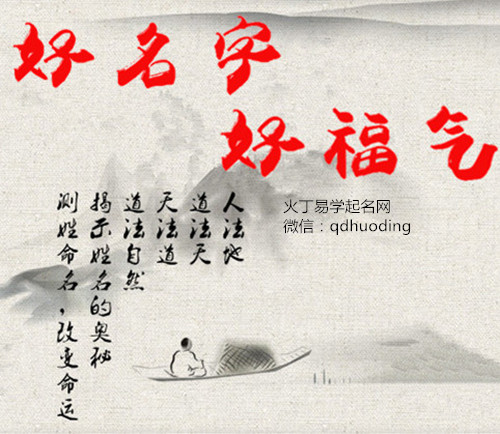 好名字
好福气
人法地
道法天
天法道
道法自然
揭示姓名的奥秘
测姓命名，改变命运
火丁易学起名网
微信：qdhuoding